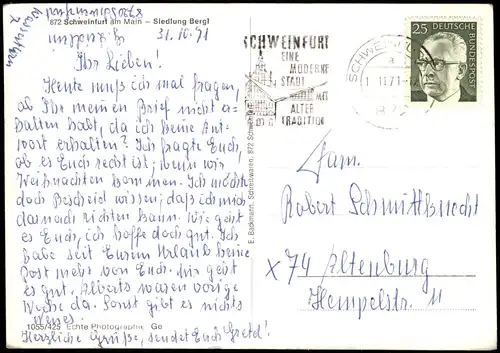 872 Schweinfurt am Main – Siedlung Bergl
31. 10. 71
Ihr Lieben!
Heute muß ich mal fragen,
ob Ihr meinen Brief nicht er-
halten habt, da ich keine Ant-
wort erhalten? Ich fragte Euch,
ob es Euch recht ist, wenn wir
Weihnachten kommen. Ich möchte
doch Bescheid wissen, daß ich mich
darnach richten kann. Wie geht
es Euch, ich hoffe doch gut. Ich
habe seit Eurem Urlaub keine
Post mehr von Euch. Mir geht
es gut. Alberts waren vorige
Woche da. Sonst gibt es nichts
Neues.
1055/425 Echte Photographie Ge
Herzliche Grüße, sendet Euch Gretel!
E. Backmann, Schreibwaren, 872 Schweinfurt
SCHWEINFURT
EINE
MODERNE
STADT
MIT
ALTER
TRADITION
SCHWEINFURT
a
1.11.71
872
25
DEUTSCHE
BUNDESPOST
Fam.
Robert Schmittknecht
x 74 Altenburg
Hempelstr. 11